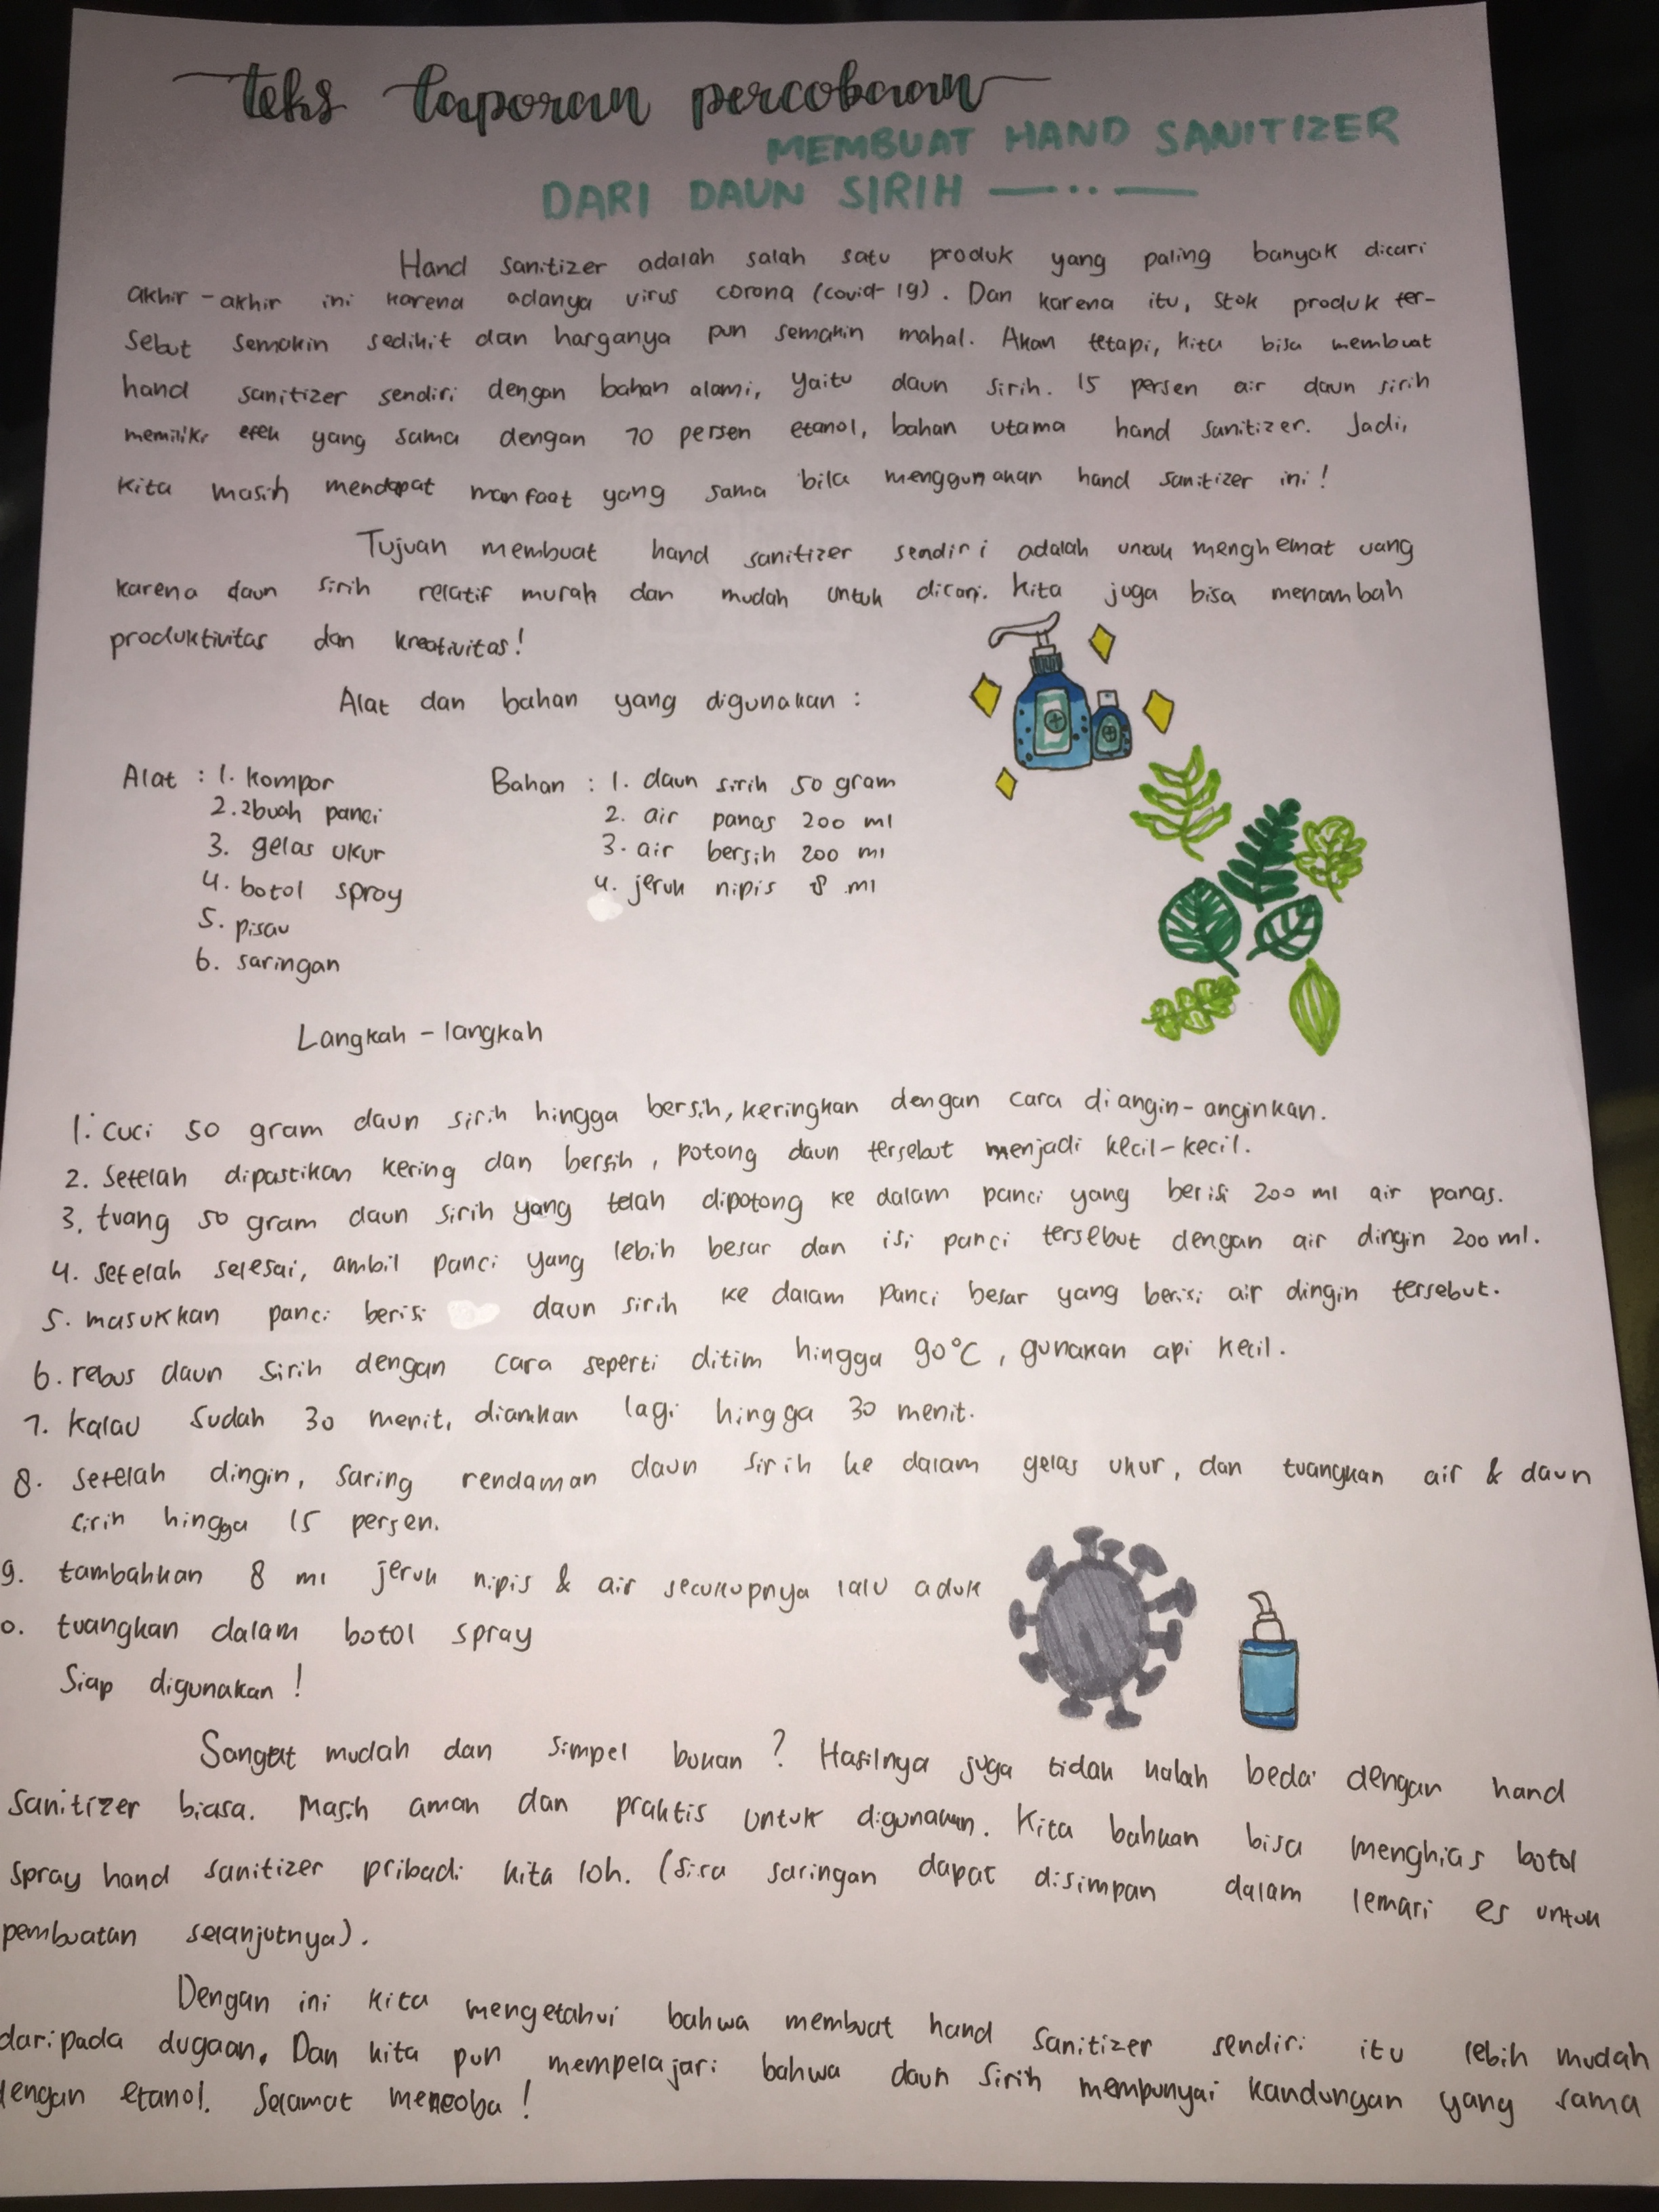 teks laporan percobaan
MEMBUAT HAND SANITIZER
DARI DAUN SIRIH
Hand sanitizer adalah salah satu produk yang paling banyak dicari
akhir-akhir ini karena adanya virus corona (covid-19). Dan karena itu, stok produk ter-
sebut semakin sedikit dan harganya pun semakin mahal. Akan tetapi, kita bisa membuat
hand sanitizer sendiri dengan bahan alami, yaitu daun sirih. 15 persen air daun sirih
memiliki efek yang sama dengan 70 persen etanol, bahan utama hand sanitizer. Jadi,
kita masih mendapat manfaat yang sama bila menggunakan hand sanitizer ini!
Tujuan membuat hand sanitizer sendiri adalah untuk menghemat uang
karena daun sirih relatif murah dan mudah untuk dicari. Kita juga bisa menambah
produktivitas dan kreativitas!
Alat dan bahan yang digunakan :
Alat : 1. kompor
2. 2buah panci
3. gelas ukur
4. botol spray
5. pisau
6. saringan
Bahan : 1. daun sirih 50 gram
2. air panas 200 ml
3. air bersih 200 ml
4. jeruk nipis 8 ml
Langkah - langkah
1. cuci 50 gram daun sirih hingga bersih, keringkan dengan cara di angin-anginkan.
2. Setelah dipastikan kering dan bersih, potong daun tersebut menjadi kecil-kecil.
3. tuang 50 gram daun sirih yang telah dipotong ke dalam panci yang berisi 200 ml air panas.
4. setelah selesai, ambil panci yang lebih besar dan isi panci tersebut dengan air dingin 200 ml.
5. masukkan panci berisi daun sirih ke dalam panci besar yang berisi air dingin tersebut.
6. rebus daun sirih dengan cara seperti ditim hingga 90°C, gunakan api kecil.
7. kalau sudah 30 menit, diamkan lagi hingga 30 menit.
8. setelah dingin, saring rendaman daun sirih ke dalam gelas ukur, dan tuangkan air & daun
sirih hingga 15 persen.
9. tambahkan 8 ml jeruk nipis & air secukupnya lalu aduk
0. tuangkan dalam botol spray
Siap digunakan!
Sangat mudah dan simpel bukan? Hasilnya juga tidak kalah beda dengan hand
sanitizer biasa. Masih aman dan praktis untuk digunakan. Kita bahkan bisa menghias botol
spray hand sanitizer pribadi kita loh. (Sisa saringan dapat disimpan dalam lemari es untuk
pembuatan selanjutnya).
Dengan ini kita mengetahui bahwa membuat hand sanitizer sendiri itu lebih mudah
daripada dugaan. Dan kita pun mempelajari bahwa daun sirih mempunyai kandungan yang sama
dengan etanol. Selamat mencoba!